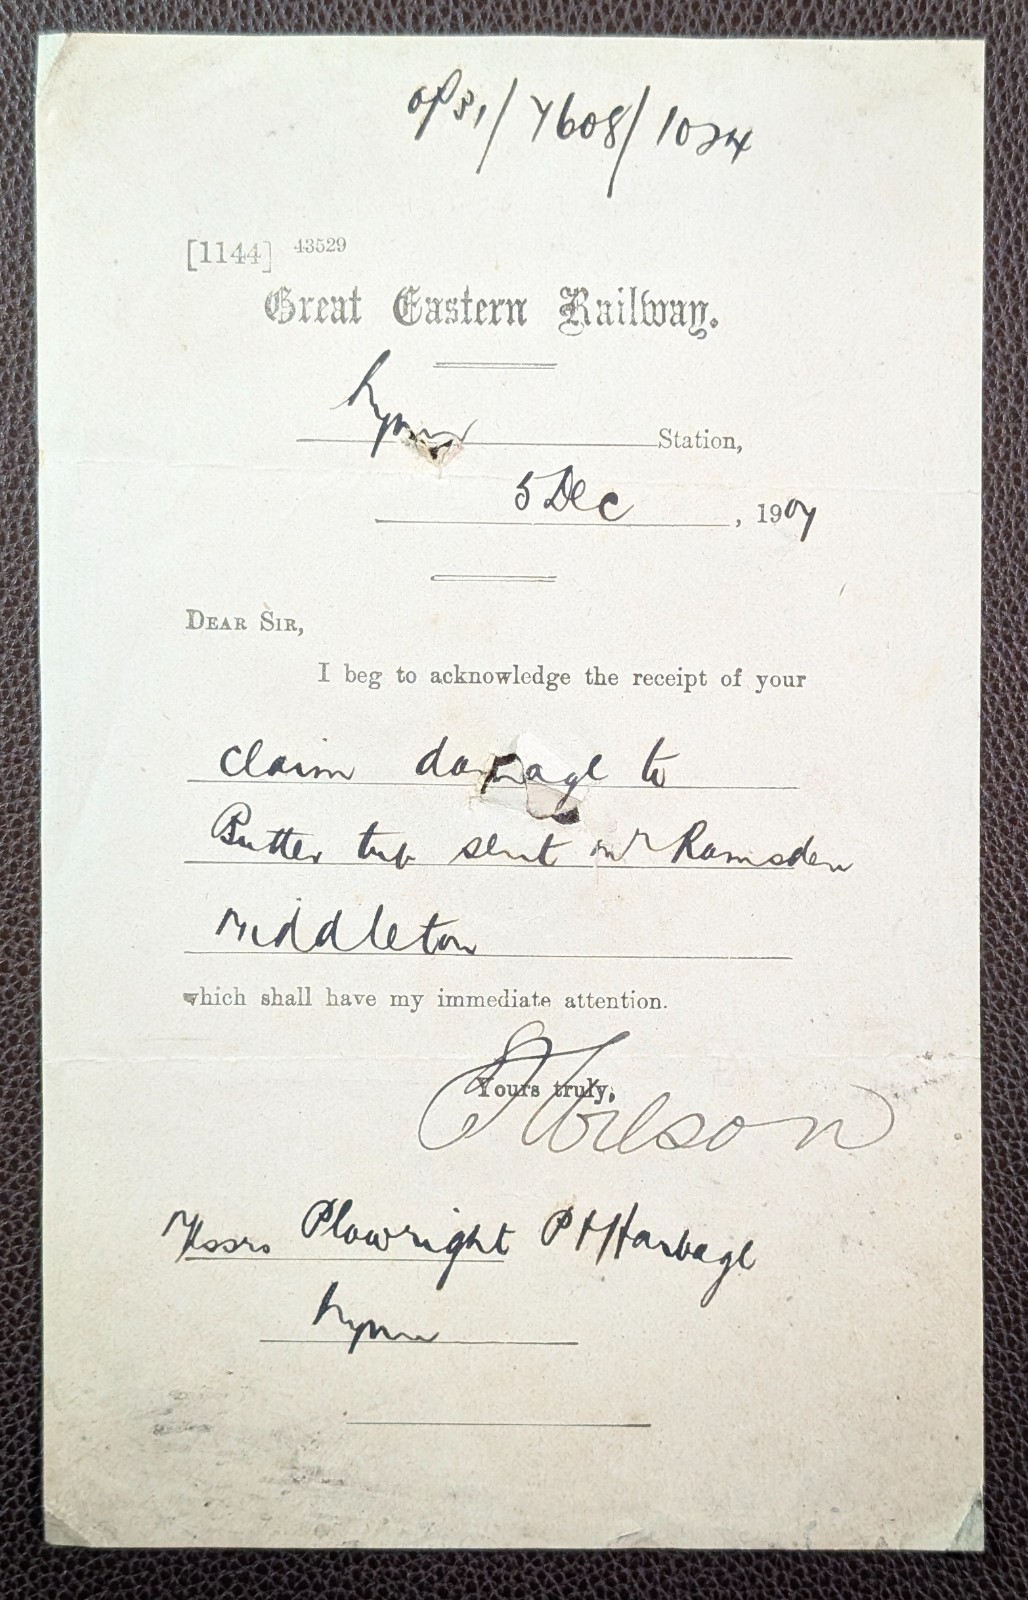 [1144] 43529
Great Eastern Railway.
Lynn Station,
5 Dec , 1907
DEAR SIR,
I beg to acknowledge the receipt of your
claim damage to
Butter tub sent Mr Ramsden
Middleton
which shall have my immediate attention.
Yours truly,
Wilson
Messrs Plowright P Harbage
Lynn